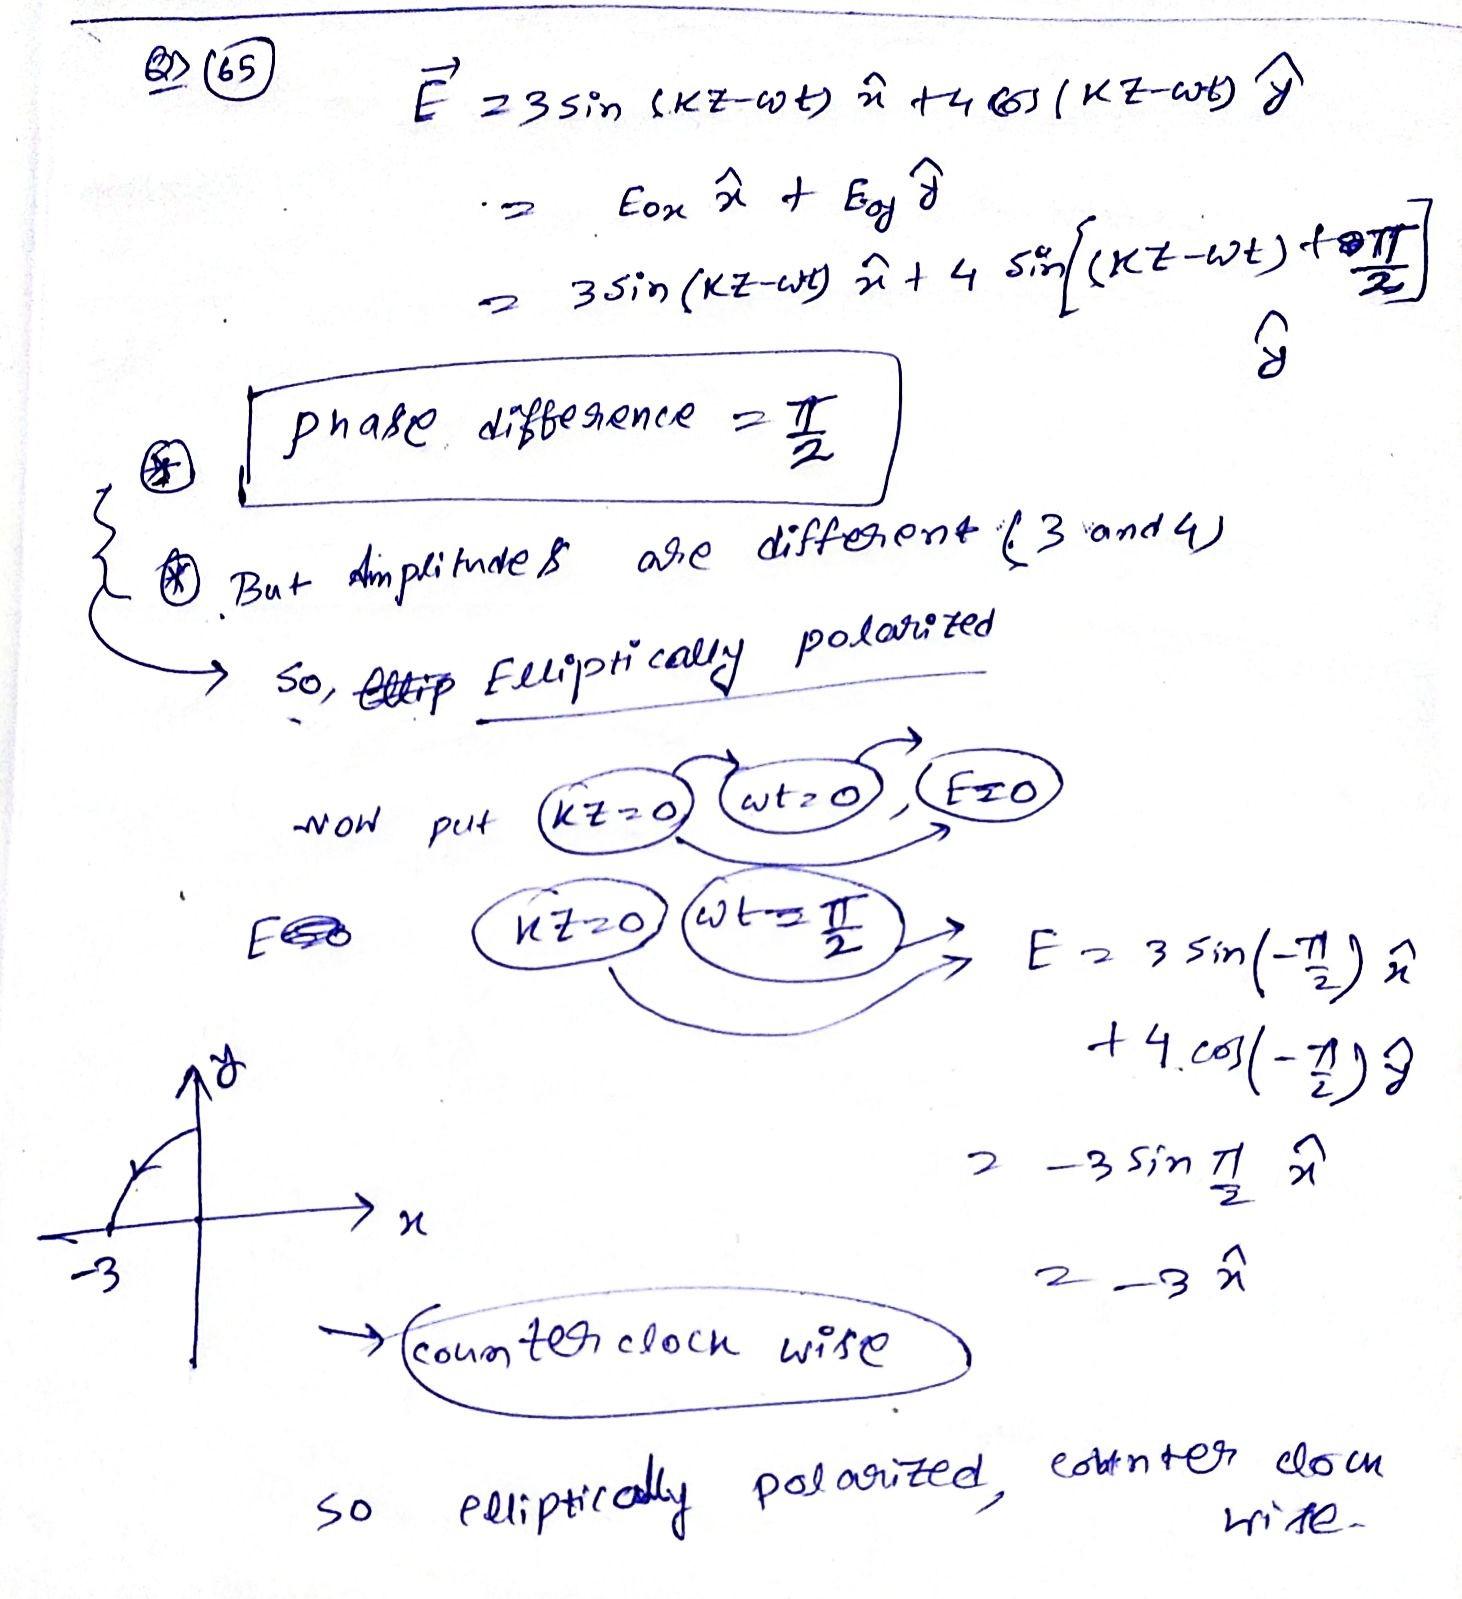 Q> (65)
E⃗ = 3 sin (KZ-ωt) x̂ + 4 cos (KZ-ωt) ŷ
= E₀ₓ x̂ + E₀y ŷ
= 3 sin (KZ-ωt) x̂ + 4 sin [(KZ-ωt) + π/2] ŷ
phase difference = π/2
But Amplitudes are different (3 and 4)
So, Elliptically polarized
Now put KZ=0, ωt=0, E=0
E KZ=0 ωt=π/2 E = 3 sin(-π/2) x̂
+ 4.cos(-π/2) ŷ
= -3 sin π/2 x̂
= -3 x̂
y
x
-3
→ counter clock wise
So elliptically polarized, counter clock
wise.